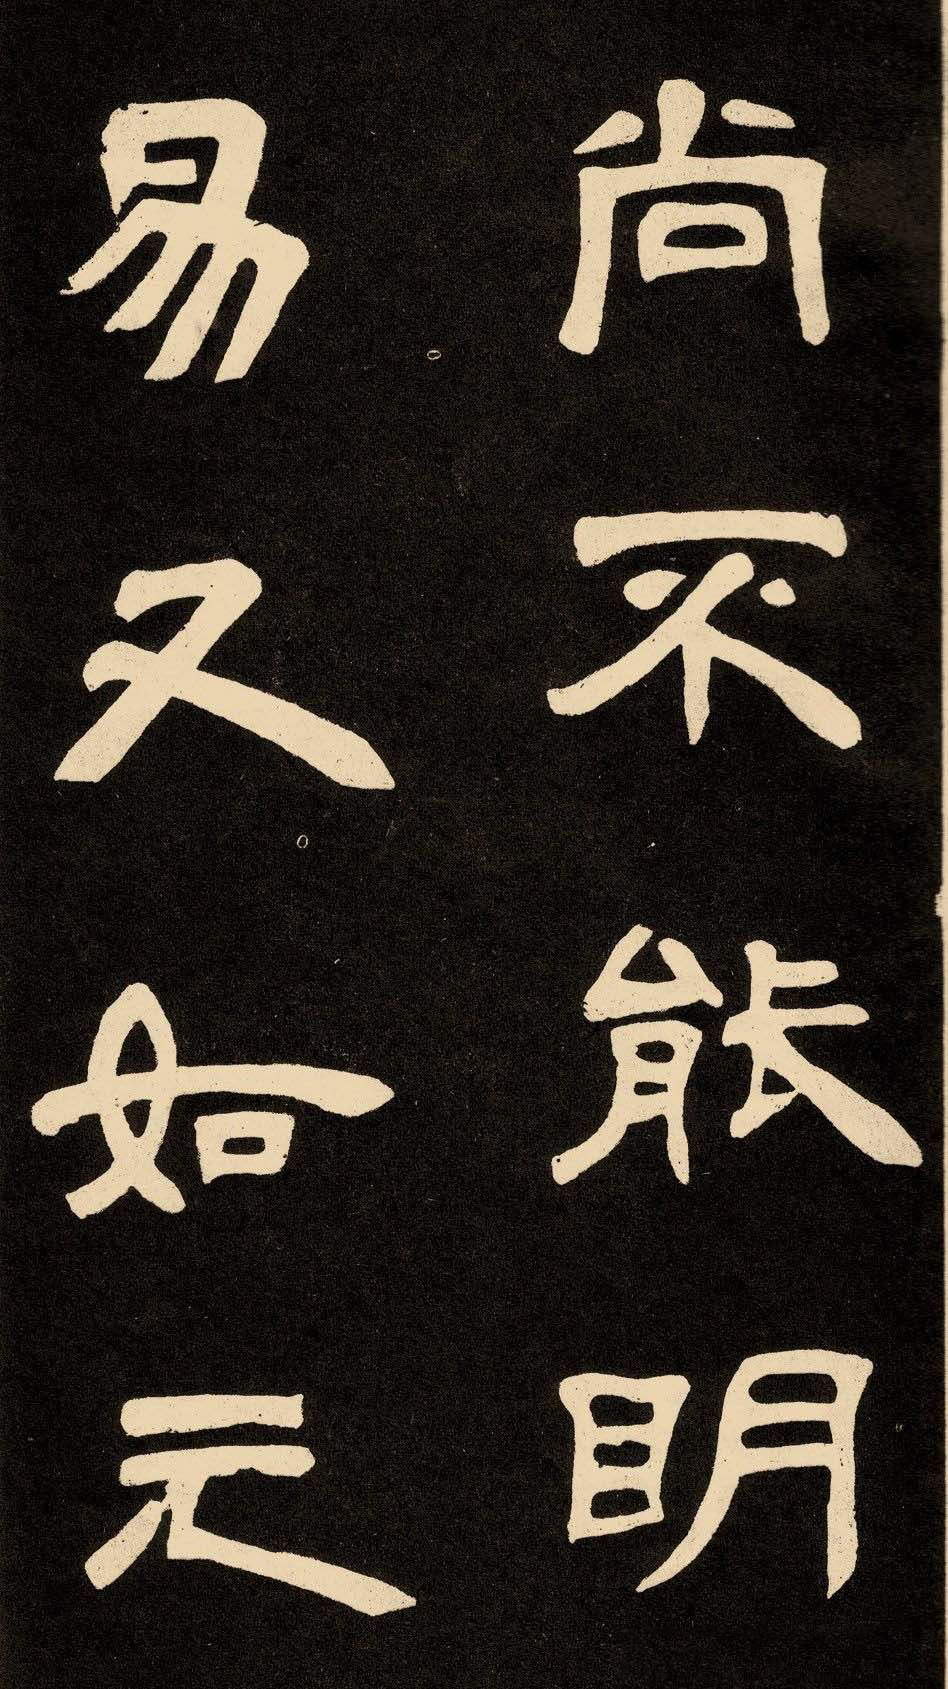 尚不能明
易又如元